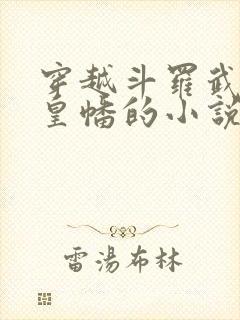 穿越斗羅武
皇幡的小說
雷湯布林